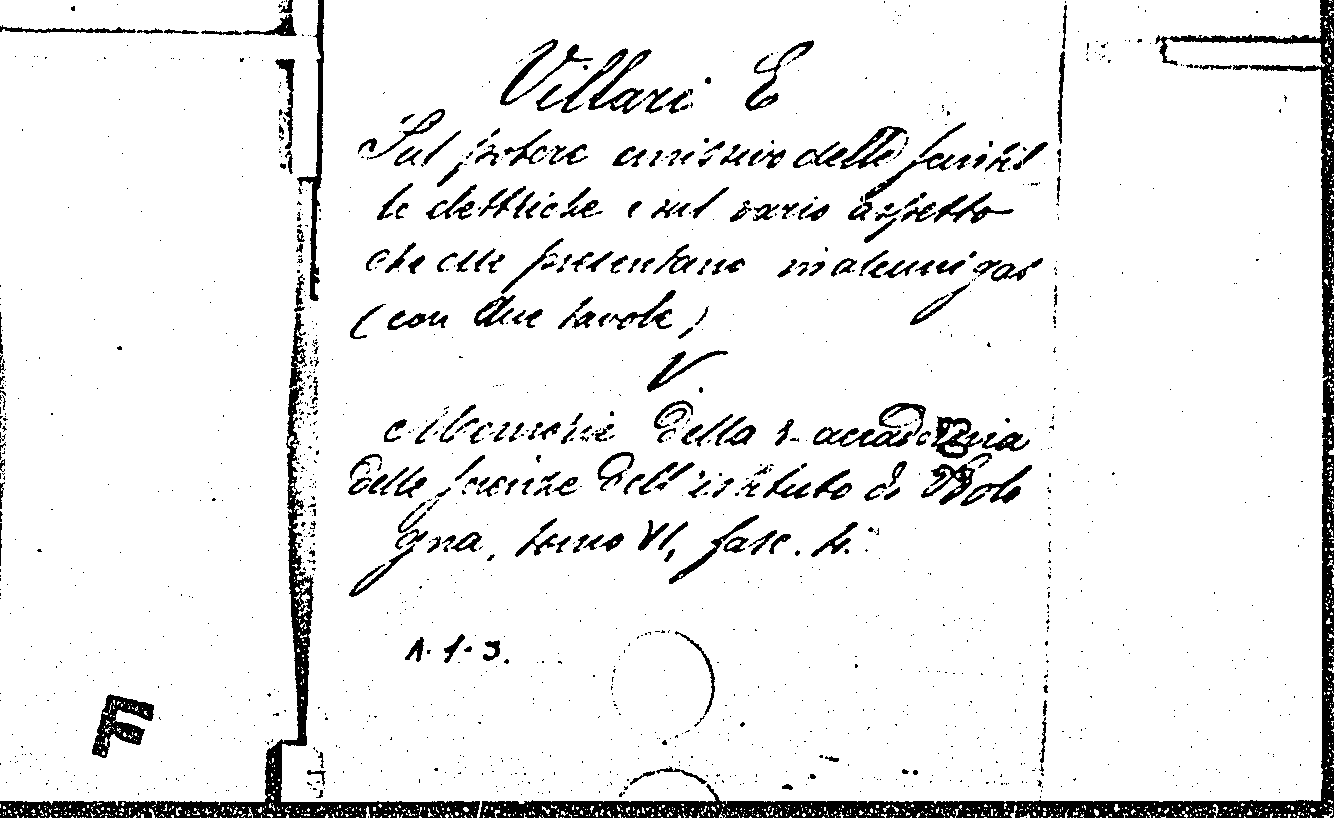 Villari E
Sul potere emissivo delle scintil
le elettriche e sul vario aspetto
che esse presentano in alcuni gas
(con due tavole)
V
Memorie della r. accademia
delle scienze dell'istituto di Bolo
gna, tomo VI, fasc.
A. 1. 3.
F